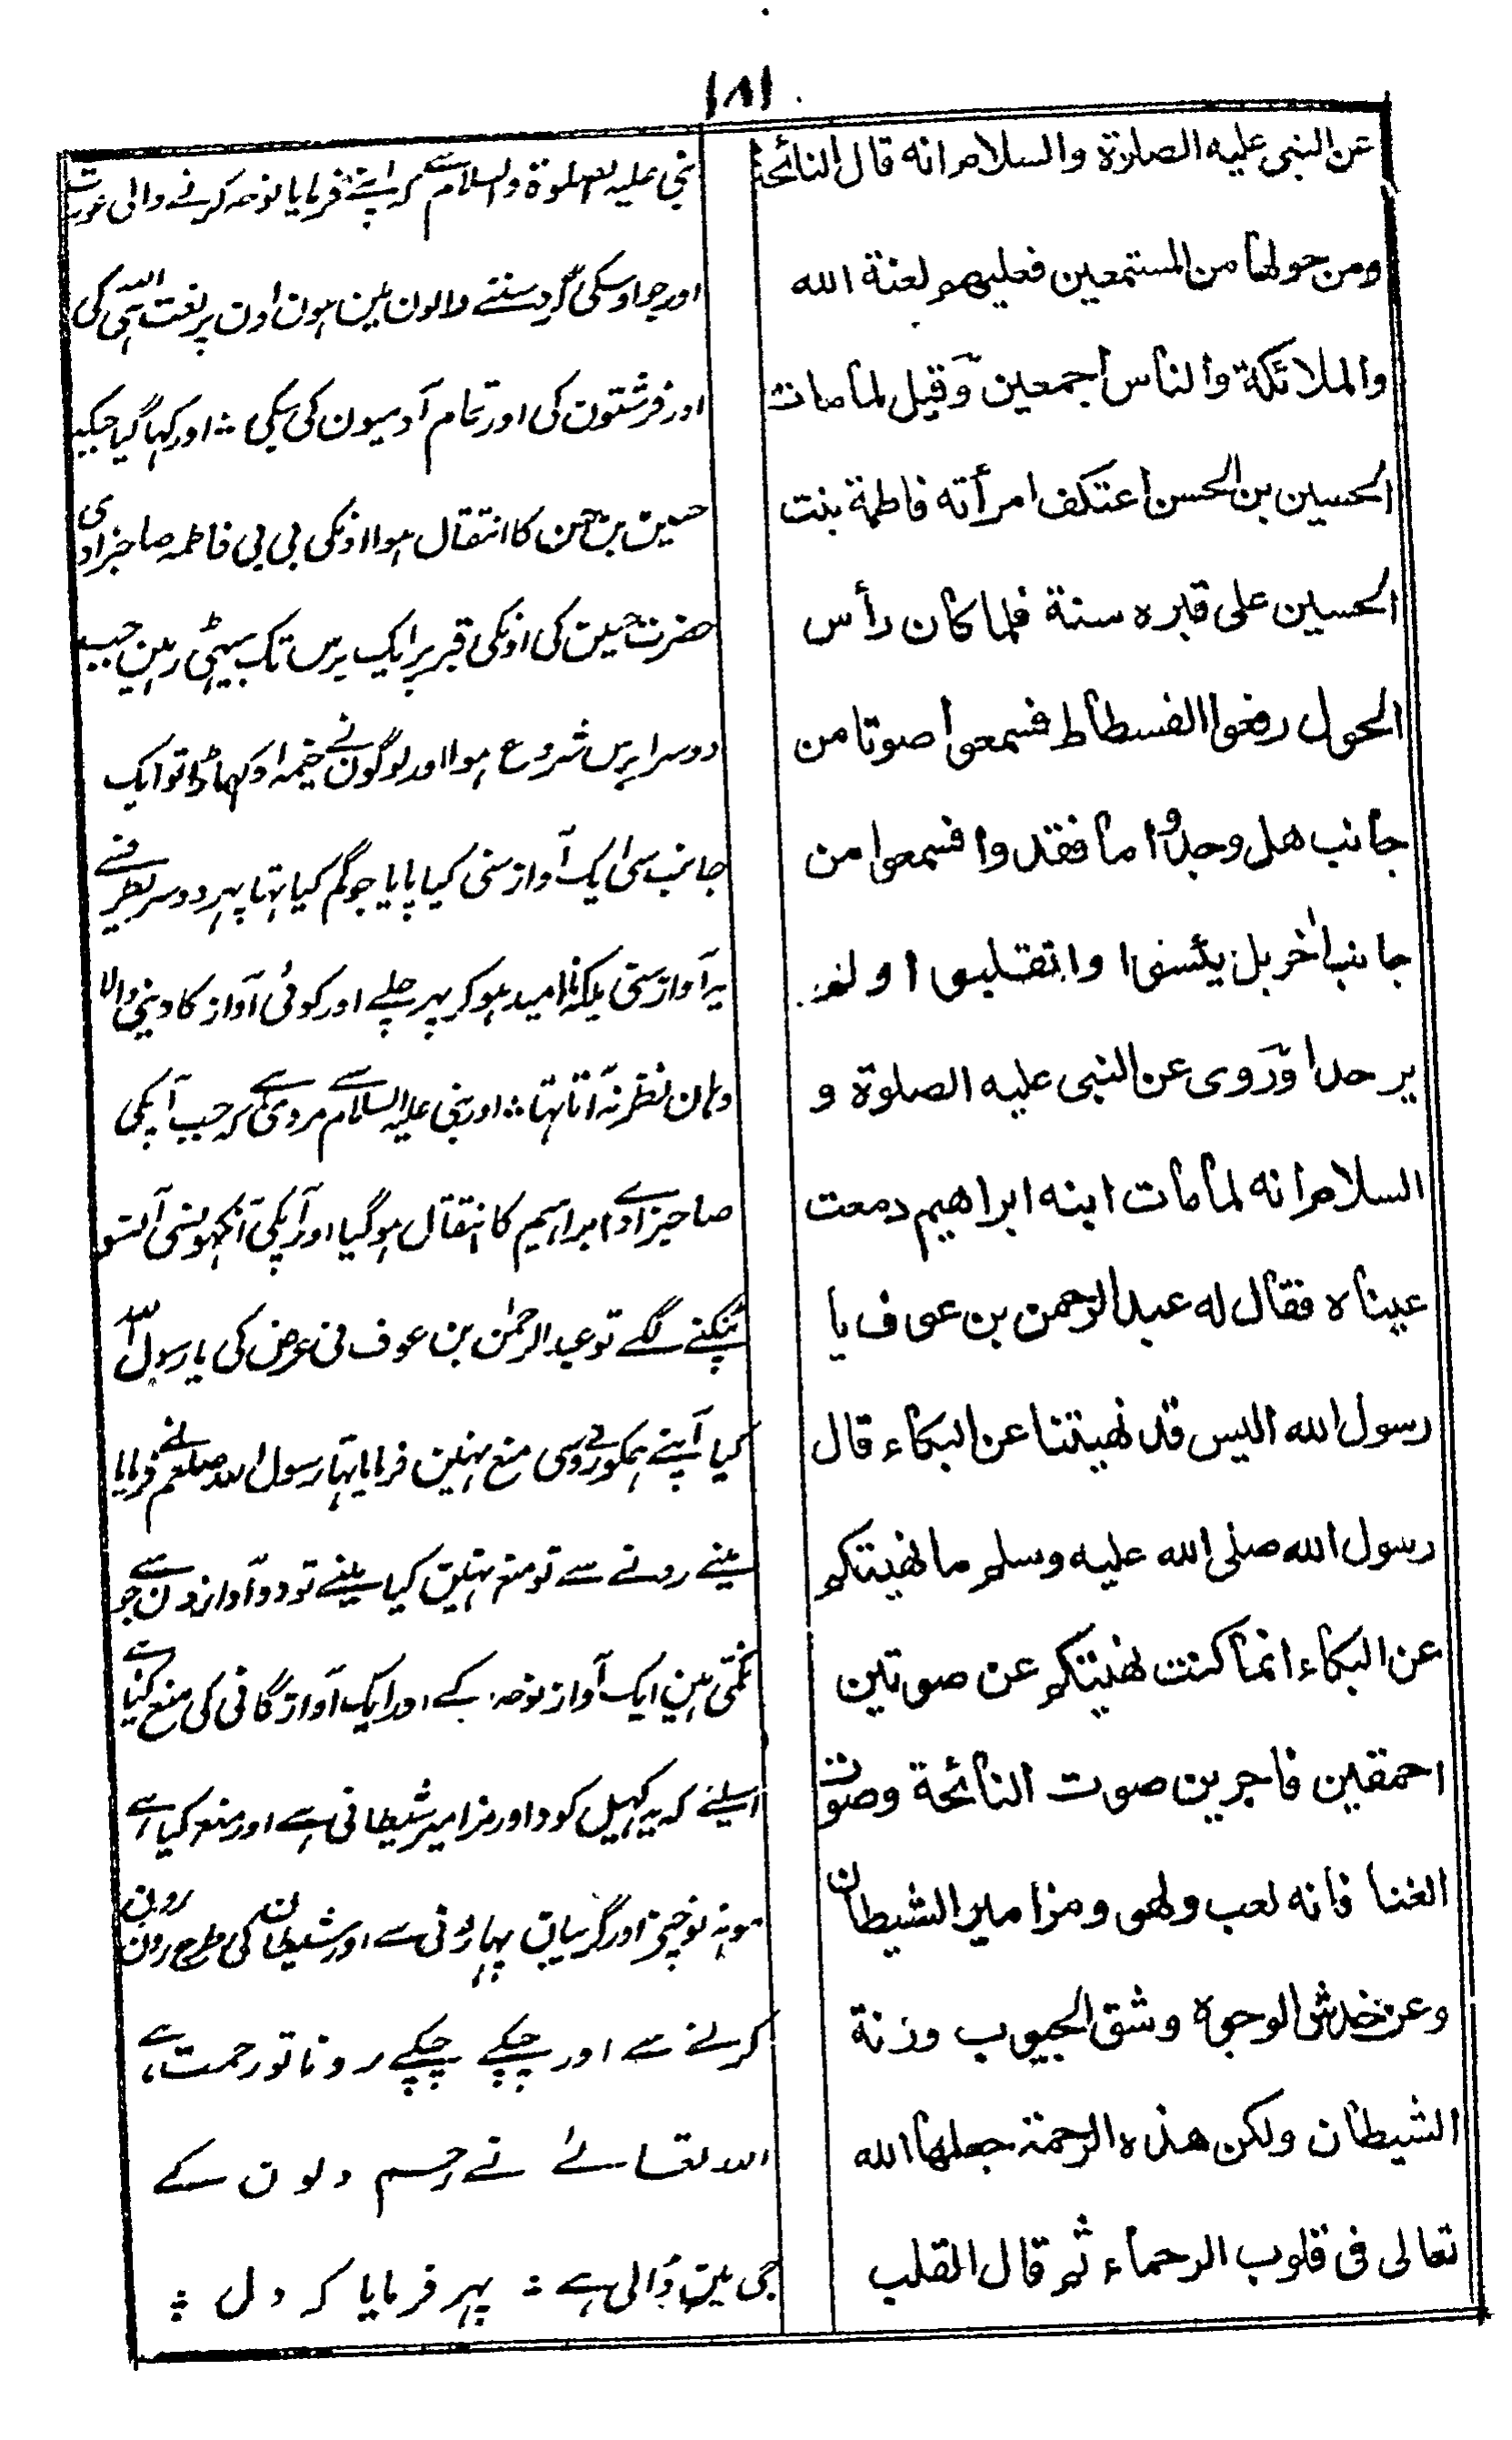 ۱۸۱
عن النبى عليه الصلاة والسلام انه قال النائحة
ومن حولها من المستمعين فعليهم لعنة الله
والملائكة والناس اجمعين وقيل لما مات
الحسين بن الحسن اعتكف امرأته فاطمة بنت
الحسين على قبره سنة فلما كان رأس
الحول رفعوا الفسطاط فسمعوا صوتا من
جانب هل وجدوا ما فقدوا فسمعوا من
جانب اخر بل يئسوا وانقلبوا ولم
ير احدا وروى عن النبى عليه الصلوة و
السلام انه لما مات ابنه ابراهيم دمعت
عيناه فقال له عبد الرحمن بن عوف يا
رسول الله اليس قد نهيتنا عن البكاء قال
رسول الله صلى الله عليه وسلم ما نهيتكم
عن البكاء انما كنت نهيتكم عن صوتين
احمقين فاجرين صوت النائحة وصوت
الغنا فانه لعب ولهو ومزامير الشيطان
وعن خدش الوجوه وشق الجيوب ورنة
الشيطان ولكن هذه الرحمة جعلها الله
تعالى فى قلوب الرحماء ثم قال القلب
نبی علیہ الصلوة والسلام سے کہ اپنے فرمایا نوحہ کرنے والی عورت
اور جو اوسکی گرد سننے والون مین ہون اون پر لعنت ہی اللہ کی
اور فرشتون کی اور تمام آدمیون کی سکی ؞ اور کہا گیا جبکہ
حسین بن حسن کا انتقال ہوا اونکی بی بی فاطمہ صاحبزادی
حضرت حسین کی اونکی قبر پر ایک برس تک بیٹہی رہین جب
دوسرا برس شروع ہوا اور لوگون نے خیمہ اوکہاڑا تو ایک
جانب سی ایک آواز سنی کیا پایا جو گم کیا تہا پہر دوسری طرف سے
یہ آواز سنی بلکہ نا امید ہو کر پہر چلے اور کوئی آواز کا دینی والا
وہان نظر نہ آتا تہا ؞ اور نبی علیہ السلام سے مروی ہے کہ جب آپکی
صاحبزادے ابراہیم کا انتقال ہو گیا اور آپکی آنکہونسی آنسو
ٹپکنے لگے تو عبد الرحمٰن بن عوف نی عرض کی یا رسول اللہ
کیا آپنے ہمکو رونے سی منع نہین فرمایا تہا رسول اللہ صلعم نے فرمایا
مینے رونے سے تو منع نہین کیا مینے تو دو آوازون سے جو
نکمّی ہین ایک آواز نوحہ کے اور ایک آواز گانی کی منع کیا ہے
اسلئے کہ یہ کہیل کود اور مزامیر شیطانی ہے اور منع کیا ہے
مونہ نوچنے اور گریبان پہاڑنی سے اور شیطان کی طرح رون رون
کرنے سے اور چپکے چپکے رونا تو رحمت ہے،
اللہ تعالےٰ نے رحیم دلون کے
جی مین ڈالی ہے ؞ پہر فرمایا کہ دل ؞